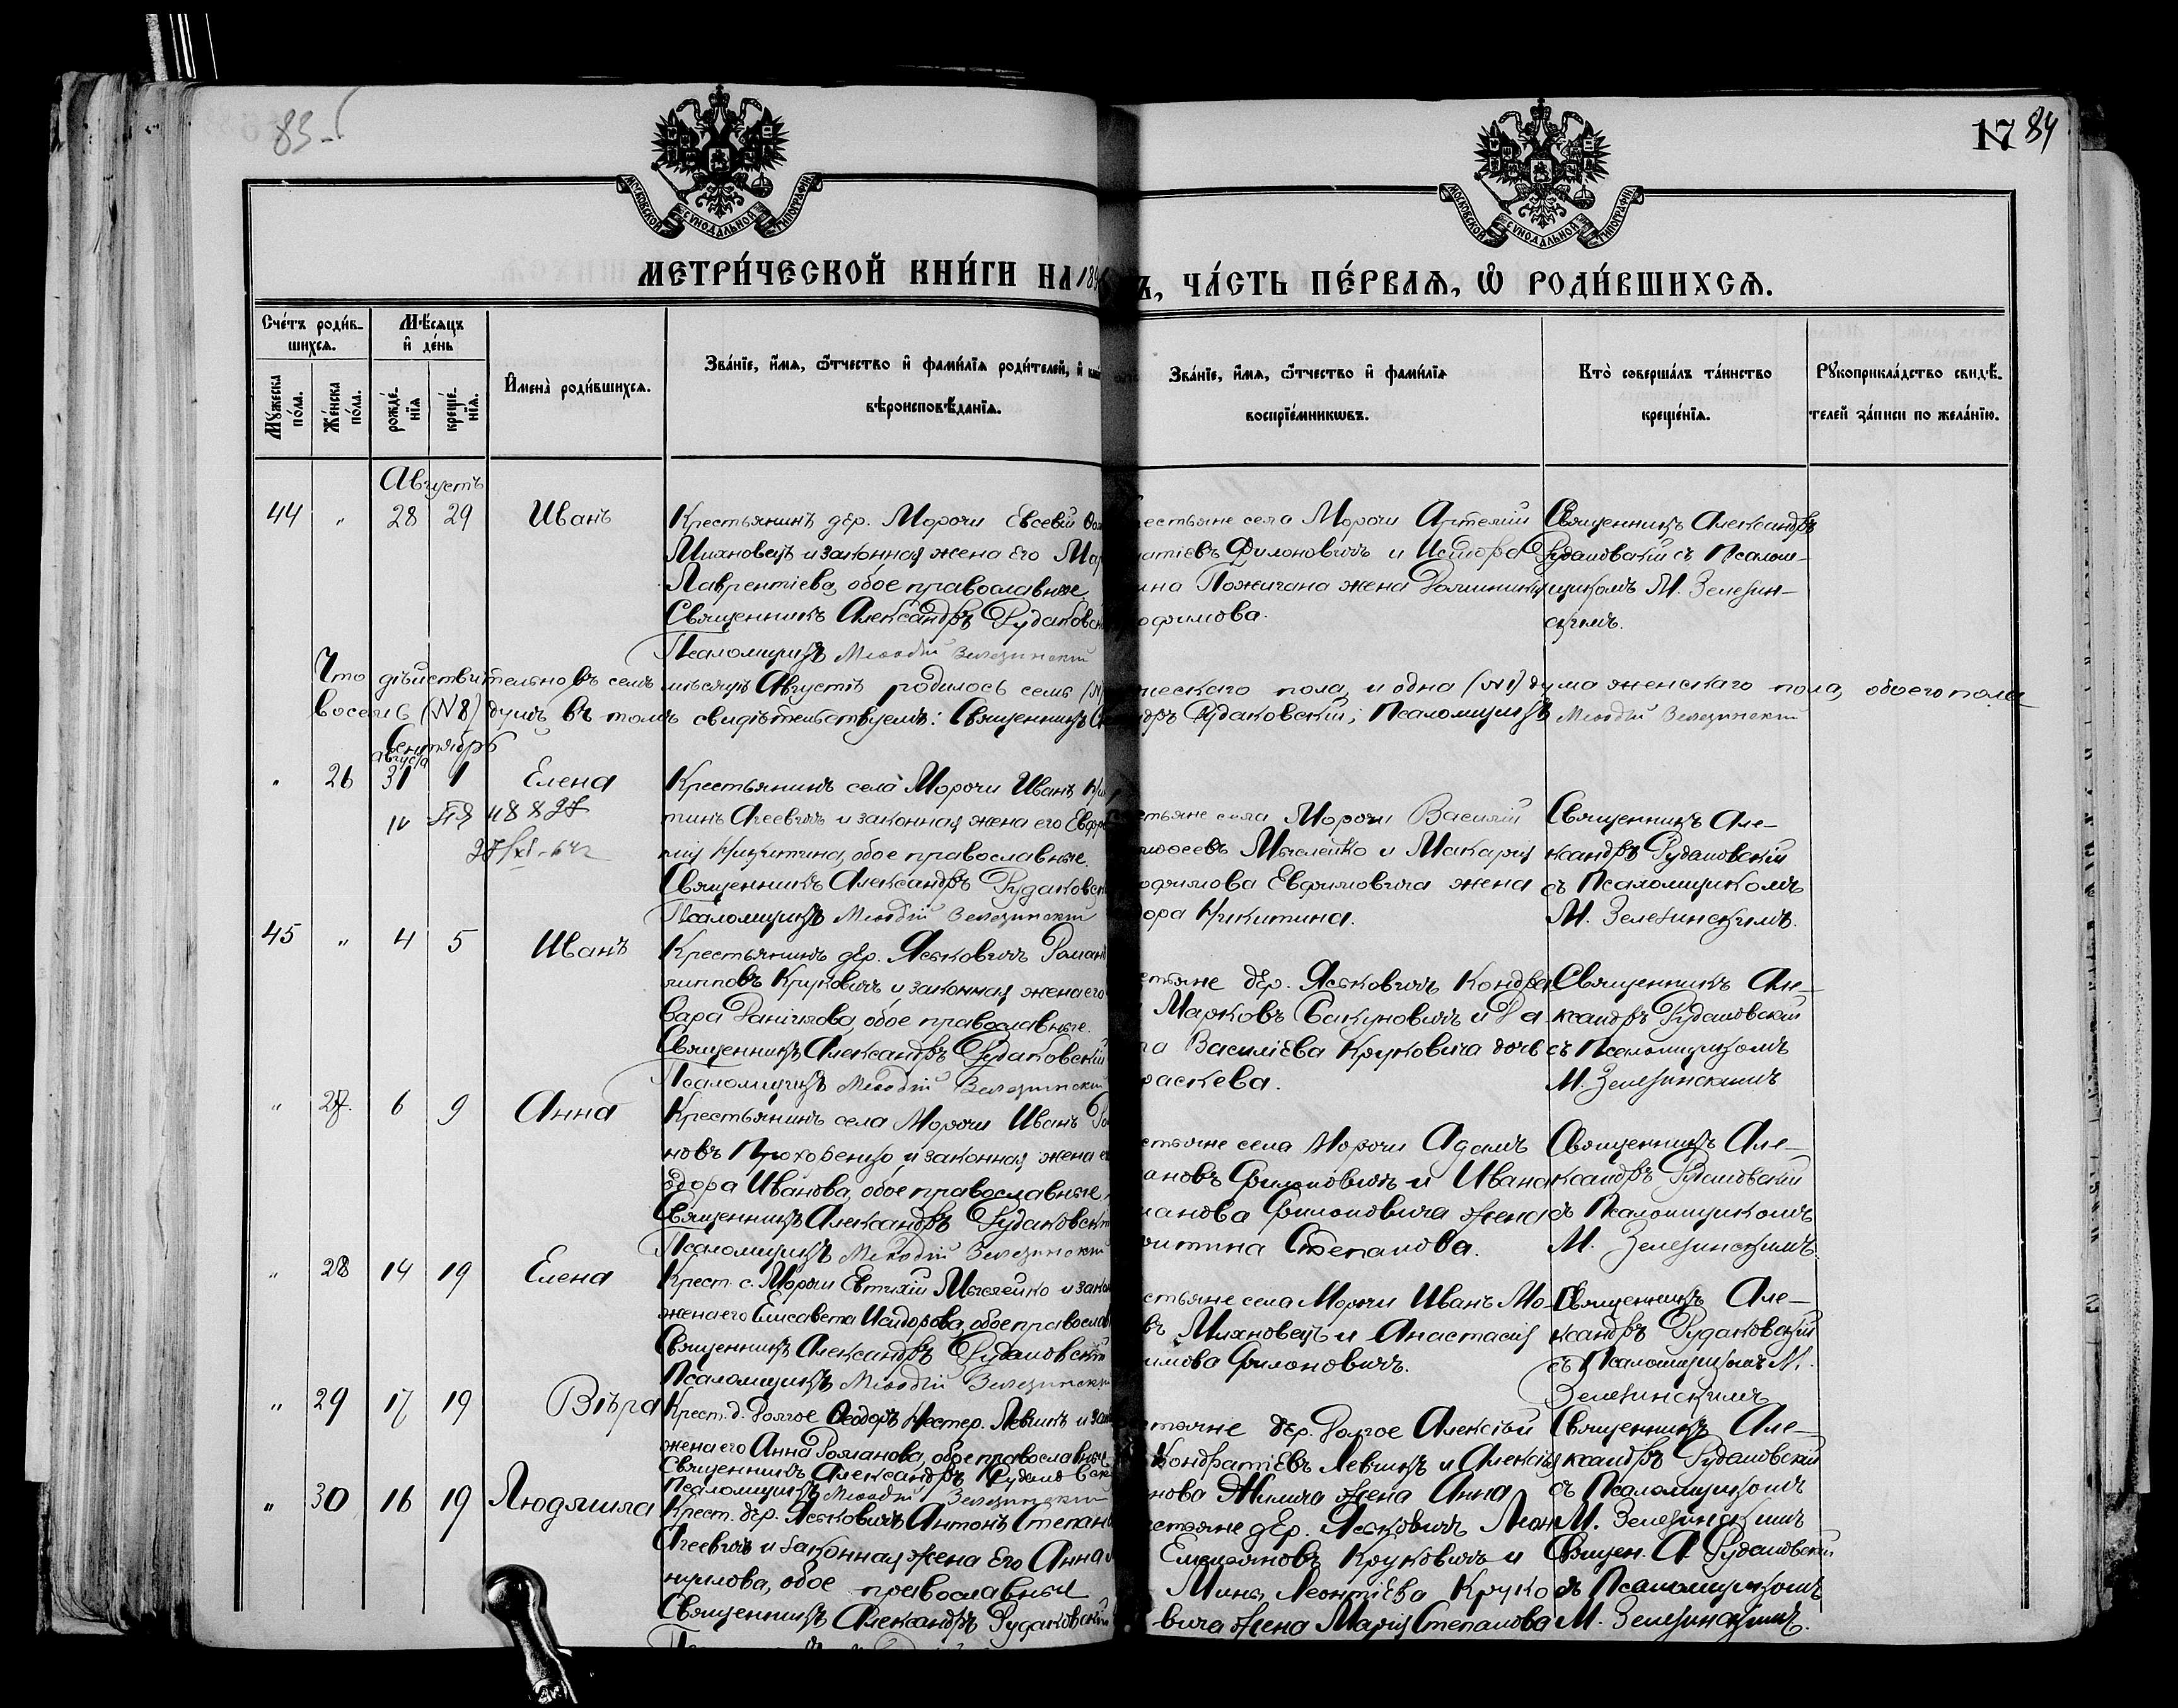 83-
17 84
МОСКОВСКОЙ СУНОДАЛЬНОЙ ТИПОГРАФИИ
МОСКОВСКОЙ СУНОДАЛЬНОЙ ТИПОГРАФИИ
МЕТРИ́ЧЕСКОЙ КНИ́ГИ НА 189
Ъ, ЧА́СТЬ ПЕ́РВАѦ, Ѡ҆ РОДИ́ВШИХСѦ.
Сче́тъ роди́в-
шихсѧ.
Мꙋ́жеска по́ла.
Же́нска по́ла.
Мѣ́сѧцъ
и҆ де́нь
рожде́-
нїѧ
креще́-
нїѧ.
И҆мена̀ роди́вшихсѧ.
Зва́нїе, и҆́мѧ, ѻ҆́тчество и҆ фами́лїѧ роди́телей, и҆
вѣроисповѣ́данїѧ.
Зва́нїе, и҆́мѧ, ѻ҆́тчество и҆ фами́лїѧ
воспрїе́мникѡвъ.
Кто̀ соверша́лъ та́инство
креще́нїѧ.
Рꙋкоприкла́дство свидѣ́-
телей за́писи по жела́нїю.
Августъ
44 " 28 29 Иванъ
Крестьянинъ дер. Морочи Евсевій
Михновецъ и законная жена его Мар
Лаврентіева, обое православные
Священникъ Александръ Рудаковскі
Псаломщикъ Меѳодій Зелезинскій
рестьяне села Морочи Артемій
атіевъ Филоновичъ и Исидора
ина Пожичана жена
офимова.
Священникъ Александръ
Рудаковскій съ Псалом-
щикомъ М. Зелезин-
скимъ.
Что дѣйствительно въ семъ мѣсяцѣ Августѣ родилось семь (№
жескаго пола, и одна (№1) душа женскаго пола, обоего пола
восемь (№8) душъ въ томъ свидѣтельствуемъ: Священникъ
ндръ Рудаковскій; Псаломщикъ Меѳодій Зелезинскій
Сентябрь
августа
" 26 31 1 Елена
Крестьянинъ села Морочи Иванъ
тинъ Агеевичъ и законная жена его Евфро
нія Никитина, обое православные.
Священникъ Александръ Рудаковскі
Псаломщикъ Меѳодій Зелезинскій
стьяне села Морочи Василій
Мыслейко и Макарія
офимова Евфимовича жена
дора Никитина.
Священникъ Але-
ксандръ Рудаковскій
съ Псаломщикомъ
М. Зелезинскимъ.
45 " 4 5 Иванъ
Крестьянинъ дер. Яськовичъ Роман
липповъ Круковичъ и законная жена его
вара Данилова, обое православные.
Священникъ Александръ Рудаковскій
Псаломщикъ Меѳодій Зелезинскій
стьяне дер. Яськовичъ Кондра
Марковъ Бакуновичъ и Да
Василіева Круковича дочь
раскева.
Священникъ Але-
ксандръ Рудаковскій
съ Псаломщикомъ
М. Зелезинскимъ
" 27. 6 9 Анна
Крестьянинъ села Морочи Иванъ Ро
новъ Прохоренко и законная жена е
одора Иванова, обое православные
Священникъ Александръ Рудаковскі
Псаломщикъ Меѳодій Зелезинскій
стьяне села Морочи Адамъ
ановъ Филоновичъ и Ивана
манова Филоновича жена
Степанова.
Священникъ Але-
ксандръ Рудаковскій
съ Псаломщикомъ
М. Зелезинскимъ.
" 28 14 19 Елена
Крест. с. Морочи Евтихій Мыслейко и зако
жена его Елисавета Исидорова, обое православ
Священникъ Александръ Рудаковскій
Псаломщикъ Меѳодій Зелезинскі
стьяне села Морочи Иванъ Мо-
въ Михновецъ и Анастасія
имова Филоновичъ.
Священникъ Але-
ксандръ Рудаковскій
съ Псаломщикомъ М.
Зелезинскимъ
" 29 17 19 Вѣра
Крест. д. Долгое Ѳеодоръ Нестер. Левчикъ и зак
жена его Анна Романова, обое православные
Священникъ Александръ Рудаковск
Псаломщикъ Меѳодій Зелезинскій
стьяне дер. Долгое Алексій
Кондратіевъ Левчикъ и Алексія
нова жена Анна
Священникъ Але-
ксандръ Рудаковскій
съ Псаломщикомъ
М. Зелезинскимъ
" 30 16 19 Людмила
Крест. дер. Яськовичъ Антонъ Степан
Агеевичъ и законная жена его Анна
нуилова, обое православные
Священникъ Александръ Рудаковскій
стьяне дер. Яськовичъ Леон
Емельяновъ Круковичъ и
Мины Леонтіева Круко
вича жена Марія Степанова
Священ. А. Рудаковскій
съ Псаломщикомъ
М. Зелезинскимъ.